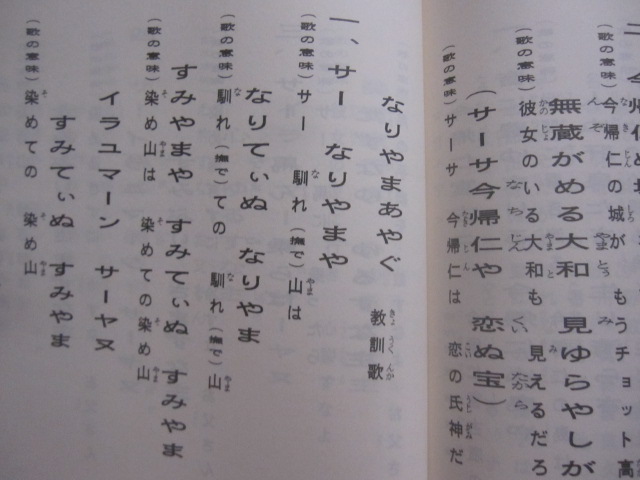 二、今帰仁の城
（歌の意味）今帰仁の城が もうチョット高
無蔵がめる大和 見ゆらやしが
（歌の意味）彼女のいる大和も 見えるだろ
（サーサ今帰仁や 恋ぬ宝）
（歌の意味）サーサ 今帰仁は 恋の氏神だ
なりやまあやぐ 教訓歌
一、サー なりやまや
（歌の意味）サー 馴れ（撫で）山は
なりてぃぬ なりやま
（歌の意味）馴れ（撫で）ての 馴れ（撫で）山
すみやまや すみてぃぬ すみやま
（歌の意味）染め山は 染めての染め山
イラユマーン サーヤヌ
すみてぃぬ すみやま
（歌の意味）染めての 染め山